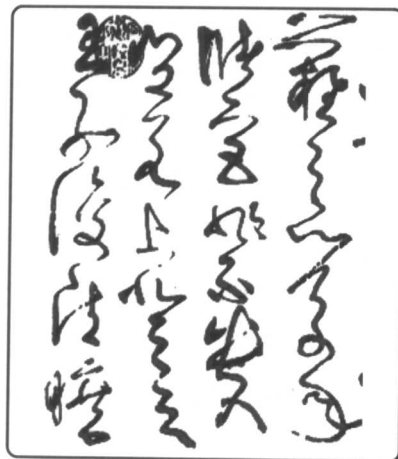 難之以萬年
儲宮非不貴
豈若上登天
王子復清曠